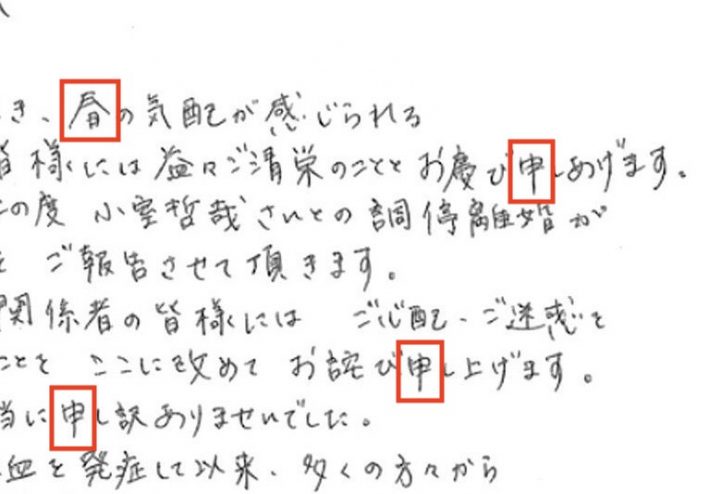 き、春の気配が感じられる
皆様には益々ご清栄のこととお慶び申しあげます。
の度 小室哲哉さんとの調停離婚が
ご報告させて頂きます。
関係者の皆様には ご心配、ご迷惑を
ことを ここに改めて お詫び申し上げます。
当に申し訳ありませんでした。
血を発症して以来、多くの方々から